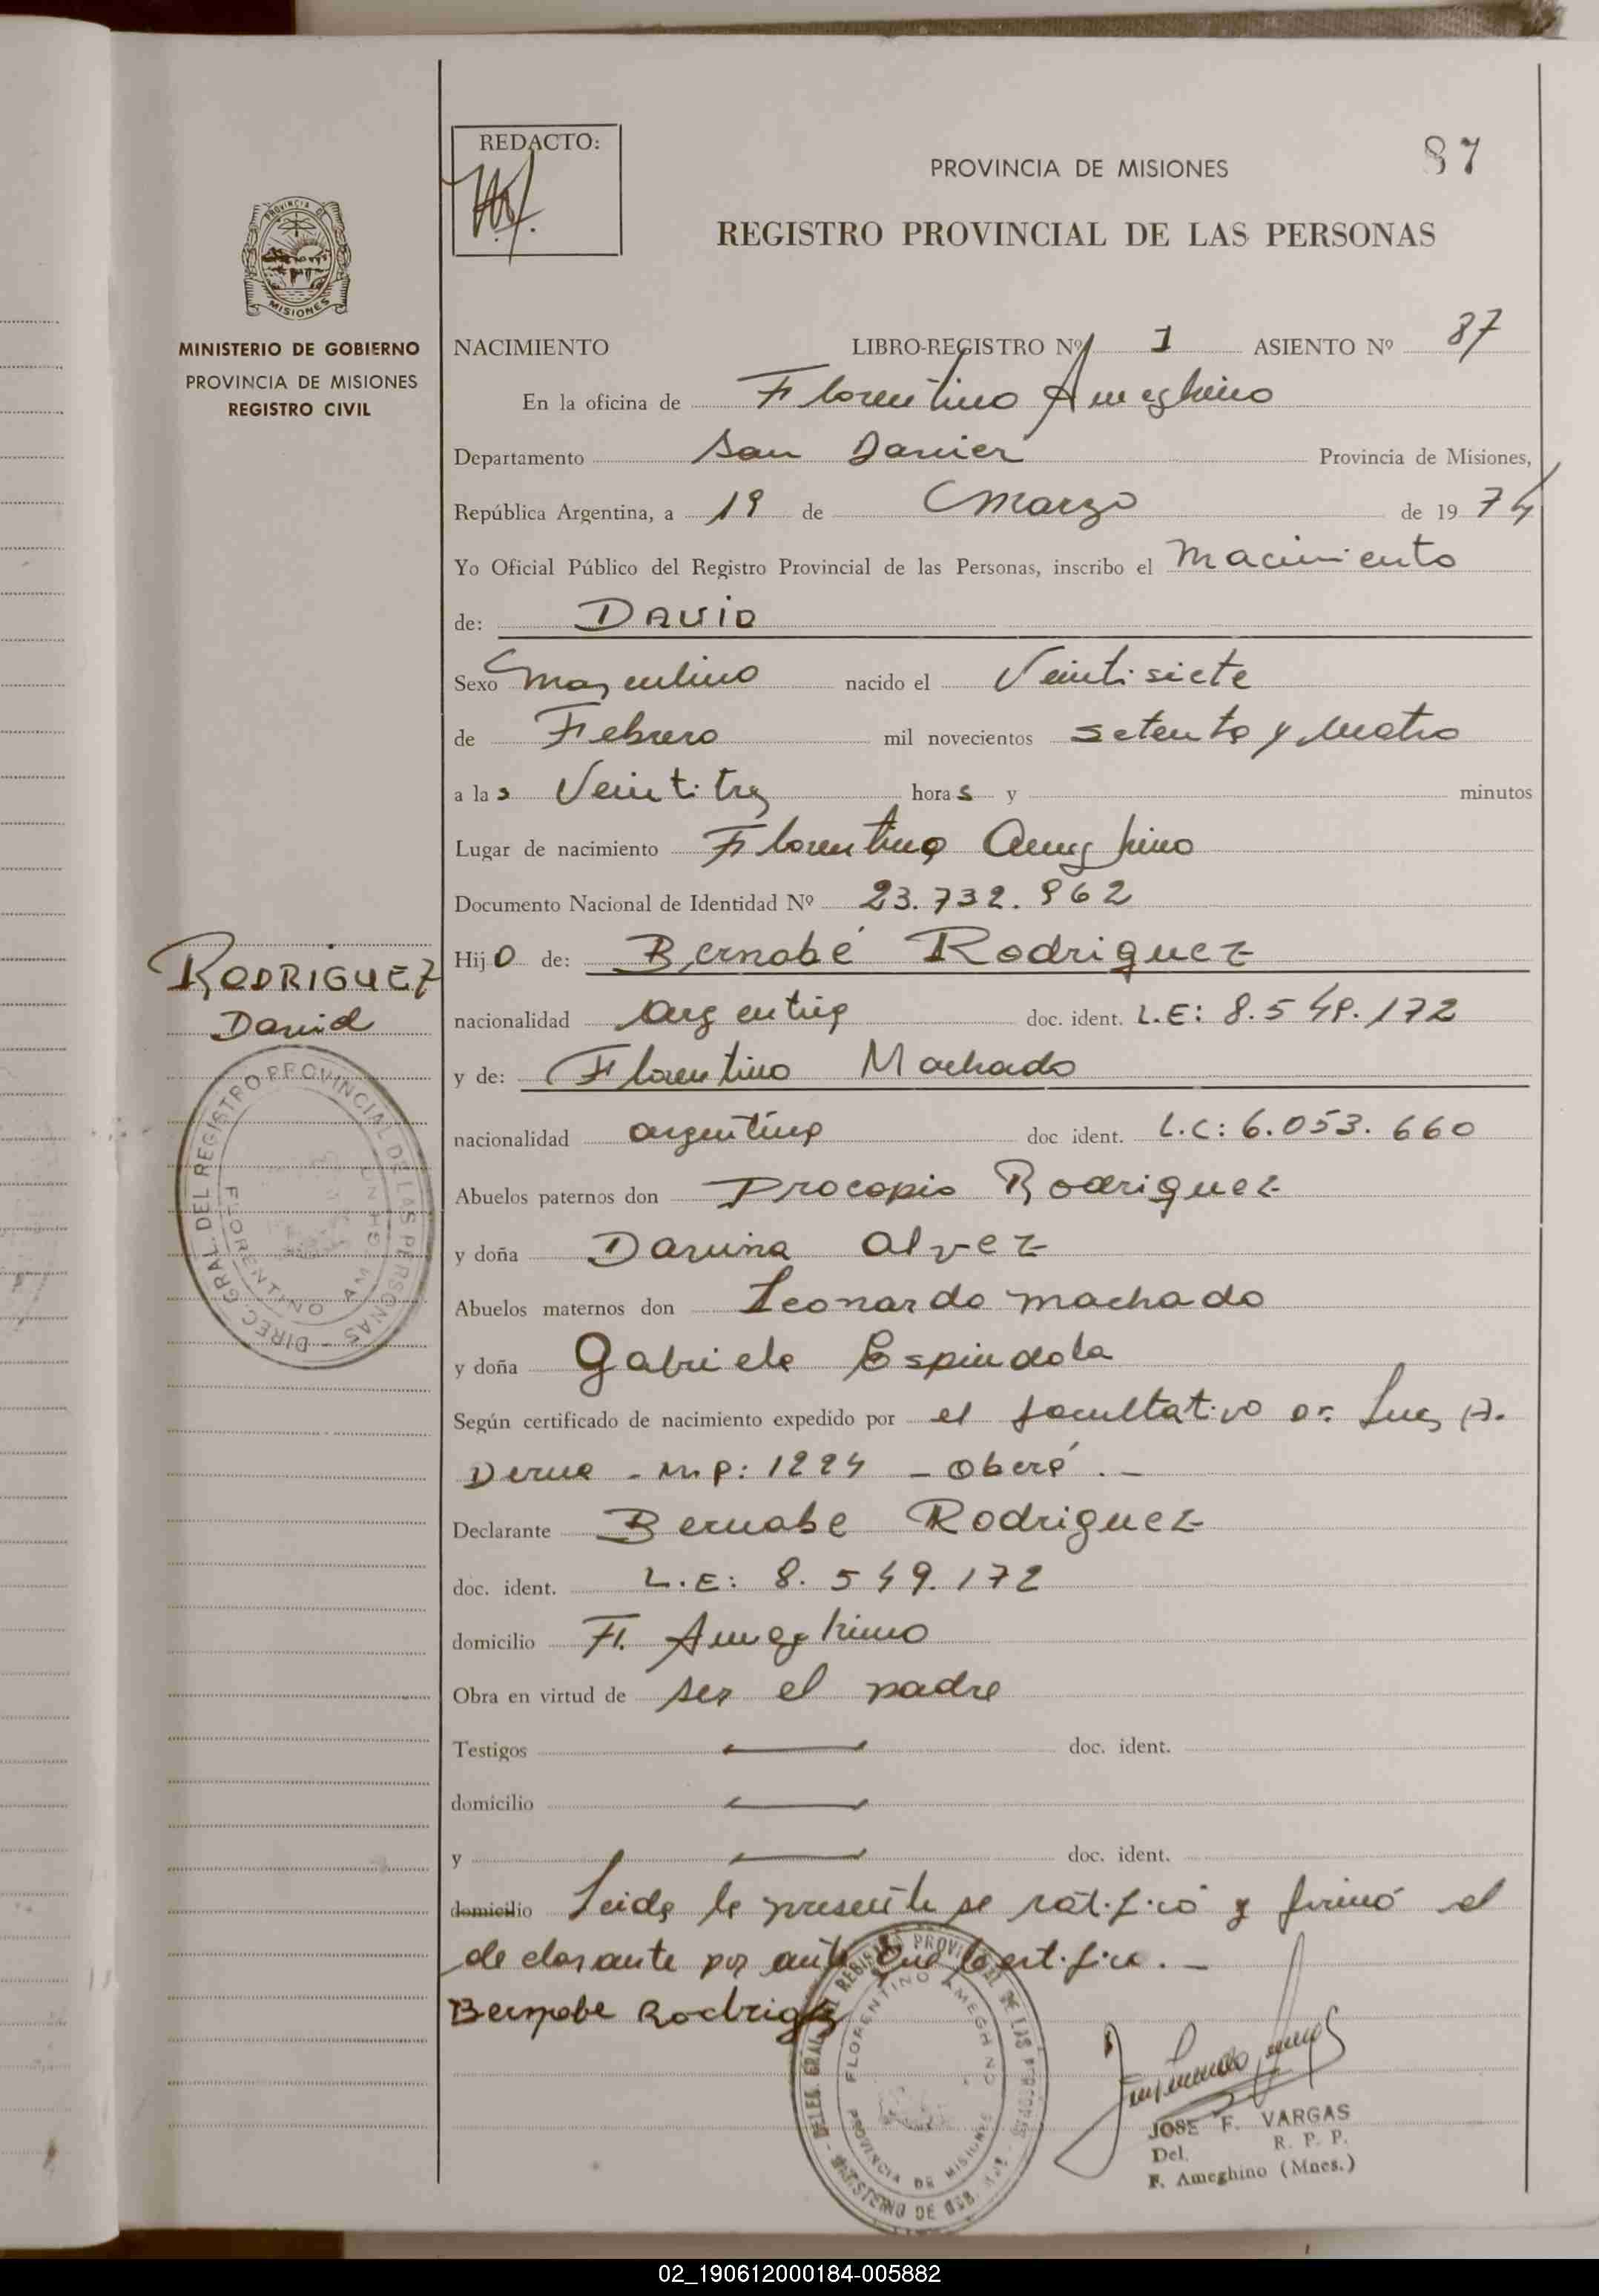 REDACTO:
PROVINCIA DE MISIONES
87
REGISTRO PROVINCIAL DE LAS PERSONAS
MISIONES
MINISTERIO DE GOBIERNO
PROVINCIA DE MISIONES
REGISTRO CIVIL
NACIMIENTO LIBRO-REGISTRO Nº 1 ASIENTO Nº 87
En la oficina de Florentino Ameghino
Departamento San Javier Provincia de Misiones,
República Argentina, a 19 de Marzo de 1974
Yo Oficial Público del Registro Provincial de las Personas, inscribo el Nacimiento
de: DAVID
Sexo Masculino nacido el Veintisiete
de Febrero mil novecientos setenta y cuatro
a las Veintitres horas y minutos
Lugar de nacimiento Florentino Ameghino
Documento Nacional de Identidad Nº 23.732.962
Hijo de: Bernabé Rodriguez
RODRIGUEZ
David
nacionalidad argentina doc. ident. L.E: 8.549.172
y de: Florentina Machado
nacionalidad argentina doc ident. L.C: 6.053.660
Abuelos paternos don Procopio Rodriguez
y doña Alvez
Abuelos maternos don Leonardo Machado
y doña Gabriela Espindola
Según certificado de nacimiento expedido por el facultativo Dr. Luis A.
M.P: 1224 - Oberá.-
Declarante Bernabe Rodriguez
doc. ident. L.E: 8.549.172
domicilio Fl. Ameghino
Obra en virtud de ser el padre
Testigos doc. ident.
domicilio
y doc. ident.
domicilio Leida la presente se ratificó y firmó el
declarante por ante que certifico.-
Bernabe Rodriguez
DIREC. GRAL. DEL REGISTRO PROVINCIAL DE LAS PERSONAS
FLORENTINO AMEGHINO
DELEG. GRAL. REGISTRO PROVINCIAL DE LAS PERSONAS - MINISTERIO DE GOB.
FLORENTINO AMEGHINO
PROVINCIA DE MISIONES
JOSE F. VARGAS
Del. R. P. P.
F. Ameghino (Mnes.)
02_190612000184-005882